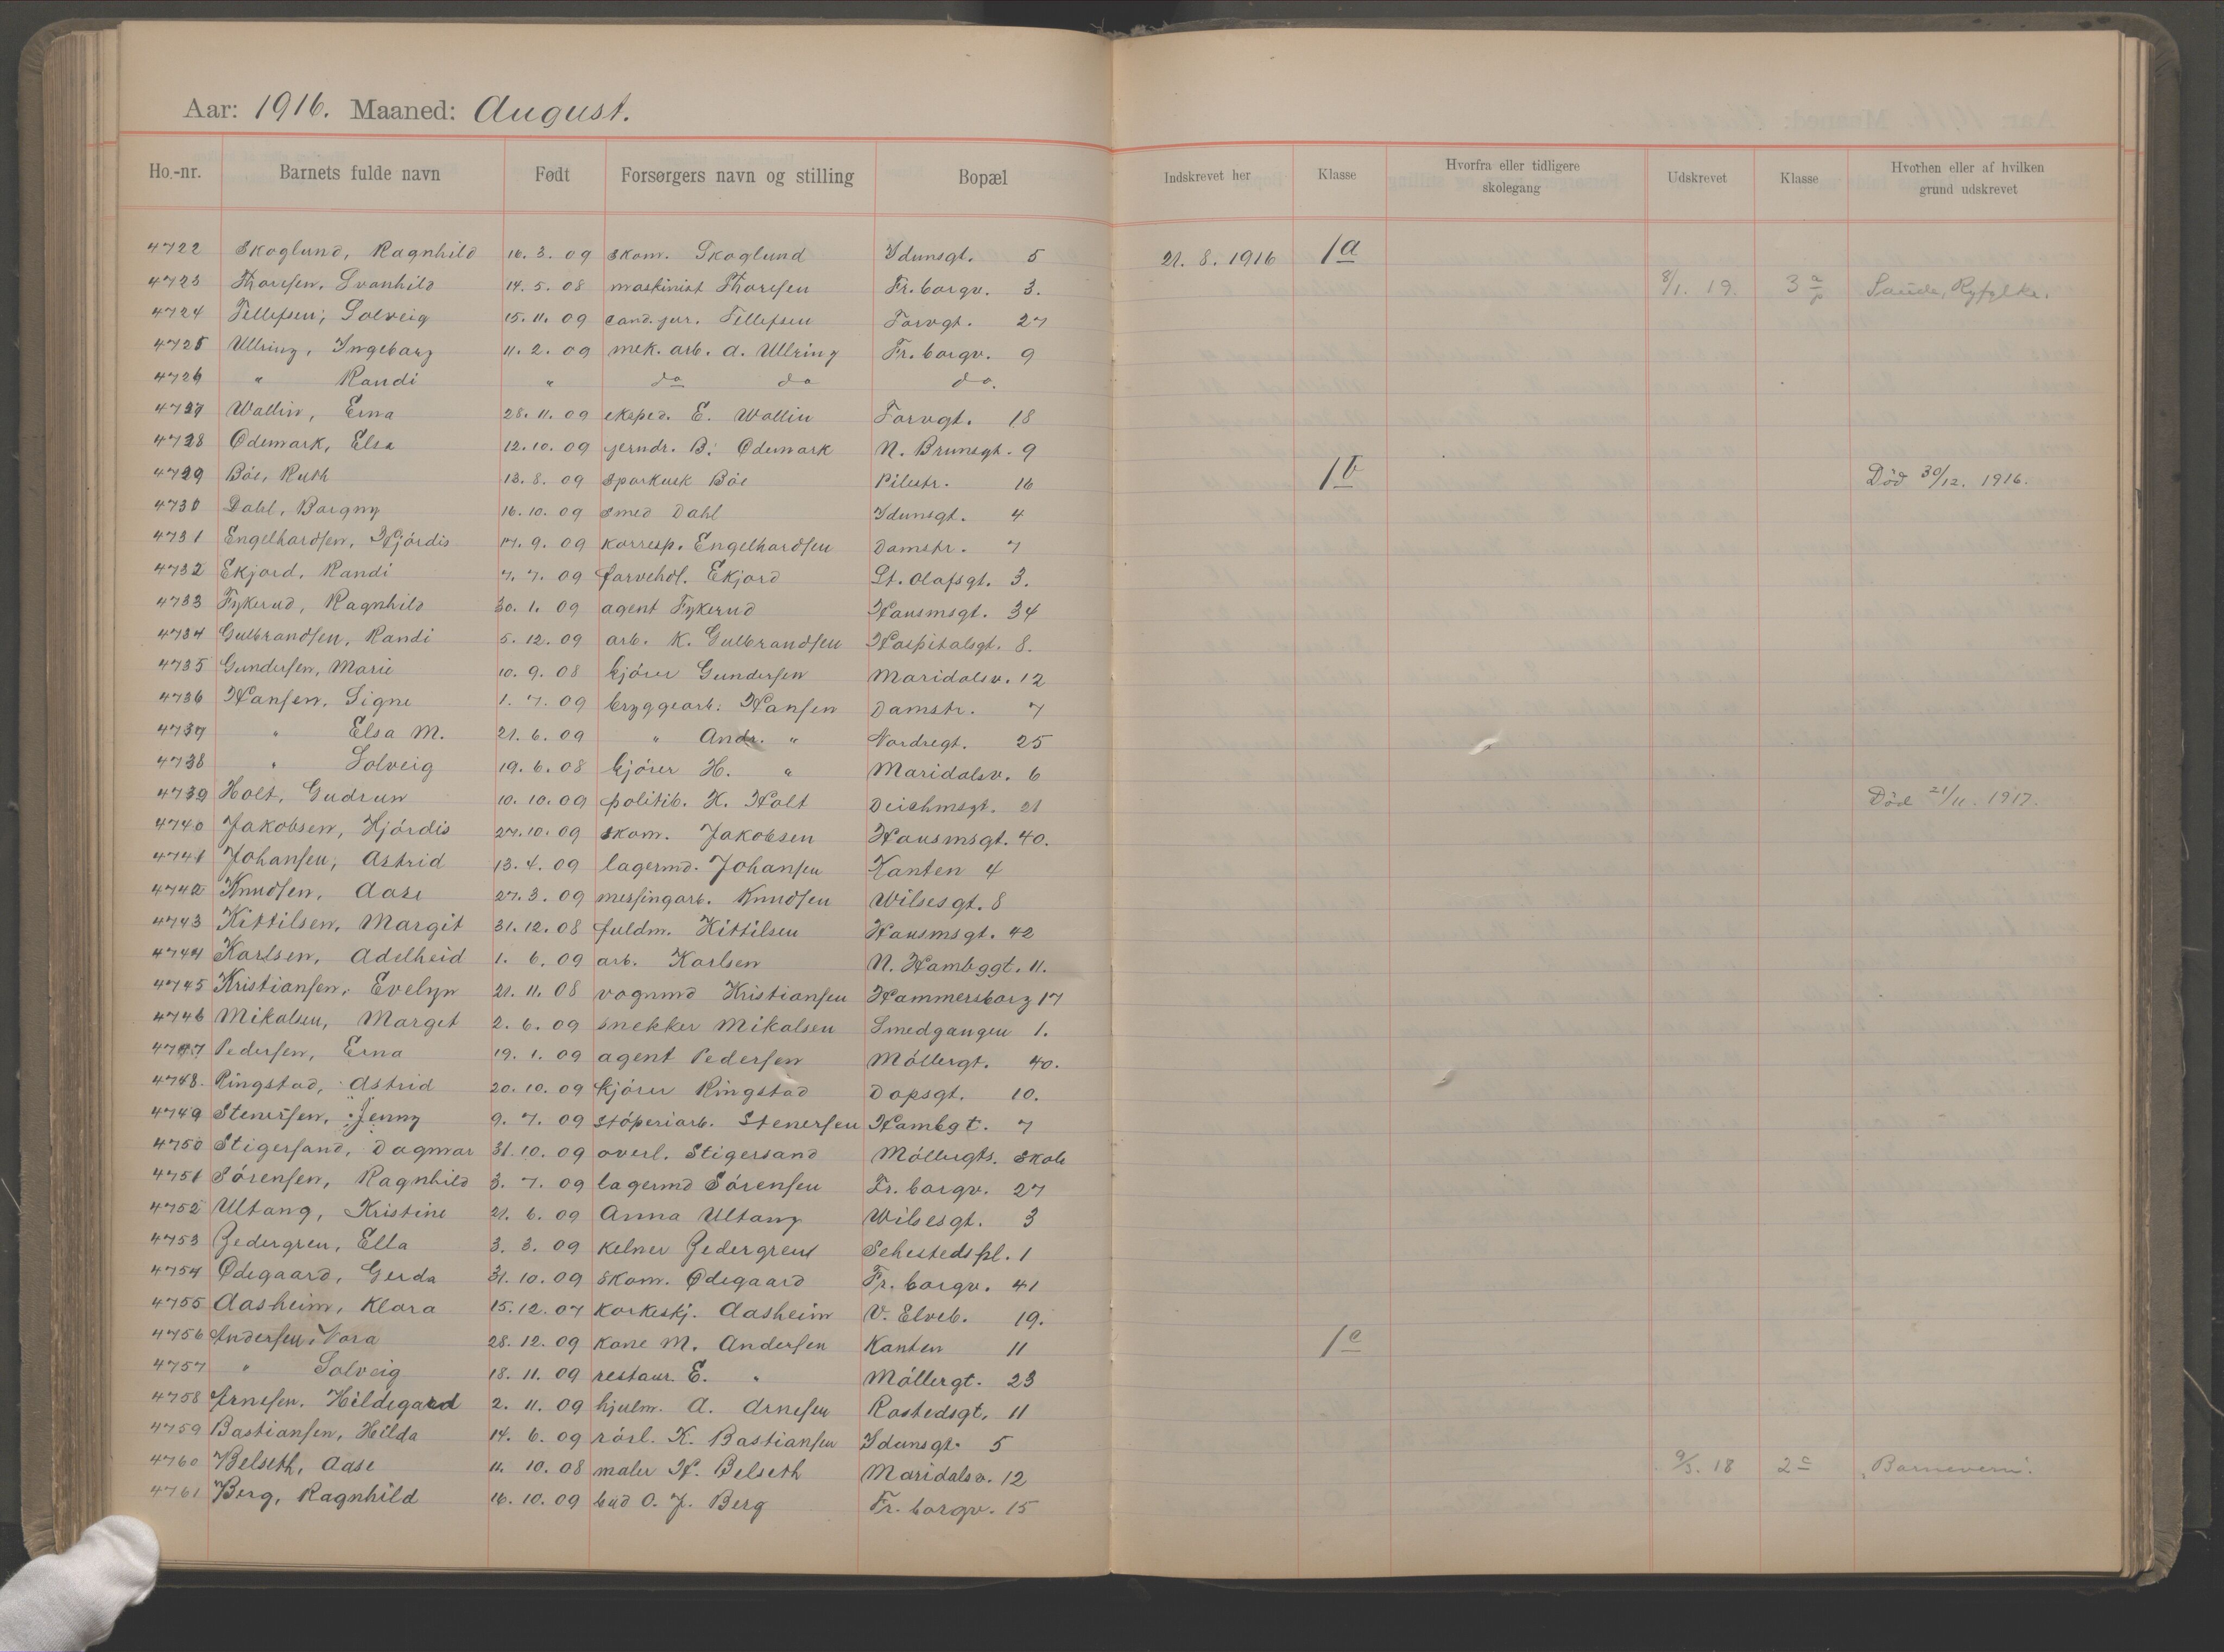 Aar: 1916. Maaned: August.
Ho.-nr. Barnets fulde navn Født Forsørgers navn og stilling Bopæl Indskrevet her Klasse Hvorfra eller tidligere skolegang Udskrevet Klasse Hvorhen eller af hvilken grund udskrevet
4722 Skoglund, Ragnhild 16. 3. 09 skom. Skoglund Idunsgt. 5 21. 8. 1916 1a
4723 Thoresen, Svanhild 14. 5. 08 maskinist Thoresen Fr.borgv. 3. 8/1. 19. 3a Saude, Ryfylke.
4724 Tellefsen, Solveig 15. 11. 09 cand. jur. Tellefsen Torvgt. 27
4725 Ullring, Ingeborg 11. 2. 09 mek. arb. A. Ullring Fr. borgv. 9
4726 " Randi " do do do.
4727 Wallin, Erna 28. 11. 09 eksped. E. Wallin Torvgt. 18
4728 Ødemark, Elsa 12. 10. 09 jerndr. B. Ødemark N. Brunsgt. 9
4729 Böe, Ruth 13. 8. 09 sporkusk Böe Pilestr. 16 1b Död 30/12. 1916.
4730 Dahl, Borgny 16. 10. 09 smed Dahl Idunsgt. 4
4731 Engelhardsen, Hjördis 17. 9. 09 korresp. Engelhardsen Damstr. 7
4732 Ekjord, Randi 7. 7. 09 farvehdl. Ekjord St. Olafsgt. 3.
4733 Fykerud, Ragnhild 30. 1. 09 agent Fykerud Hausmsgt. 34
4734 Gulbrandsen, Randi 5. 12. 09 arb. K. Gulbrandsen Hospitalsgt. 8.
4735 Gundersen, Marie 10. 9. 08 kjörer Gundersen Maridalsv. 12
4736 Hansen, Signe 1. 7. 09 bryggearb. Hansen Damstr. 7
4737 " Elsa M. 21. 6. 09 " Andr. " Nordregt. 25
4738 " Solveig 19. 6. 08 kjörer H. " Maridalsv. 6
4739 Holt, Gudrun 10. 10. 09 politib. H. Holt Deichmsgt. 21 Död 21/11. 1917.
4740 Jakobsen, Hjördis 27. 10. 09 skom. Jakobsen Hausmsgt. 40.
4741 Johansen, Astrid 13. 4. 09 lagermd. Johansen Kanten 4
4742 Knudsen, Aase 27. 3. 09 messingarb. Knudsen Wilsesgt. 8
4743 Kittilsen, Margit 31. 12. 08 fuldm. Kittilsen Hausmsgt. 42
4744 Karlsen, Adelheid 1. 6. 09 arb. Karlsen N. Hambggt. 11.
4745 Kristiansen, Evelyn 21. 11. 08 vognmd Kristiansen Hammersborg 17
4746 Mikalsen, Marget 2. 6. 09 snekker Mikalsen Smedgangen 1.
4747 Pedersen, Erna 19. 1. 09 agent Pedersen Möllergt. 40.
4748. Ringstad, Astrid 20. 10. 09 kjörer Ringstad Dopsgt. 10.
4749 Stenersen, Jenny 9. 7. 09 stöperiarb. Stenersen Hambgt. 7
4750 Stigersand, Dagmar 31. 10. 09 overl. Stigersand Möllergts. skole
4751 Sörensen, Ragnhild 3. 7. 09 lagermd Sörensen Fr. borgv. 27
4752 Ultang, Kristine 21. 6. 09 Anna Ultang Wilsesgt. 3
4753 Zedergren, Ella 3. 3. 09 kelner Zedergren Sehesteds pl. 1
4754 Ødegaard, Gerda 31. 10. 09 skom. Ødegaard Fr. borgv. 41
4755 Aasheim, Klara 15. 12. 07 korkeskj. Aasheim V. Elveb. 19.
4756 Andersen, Nora 28. 12. 09 kone M. Andersen Kanten 11 1c
4757 " Solveig 18. 11. 09 restaur. E. " Möllergt. 23
4758 Arnesen, Hildegard 2. 11. 09 hjulm. A. Arnesen Rostedsgt. 11
4759 Bastiansen, Hilda 14. 6. 09 rörl. K. Bastiansen Idunsgt. 5
4760 Belseth, Aase 11. 10. 08 maler H. Belseth Maridalsv. 12 9/3. 18 2c "Barnevern".
4761 Berg, Ragnhild 16. 10. 09 bud O. J. Berg Fr. borgv. 15